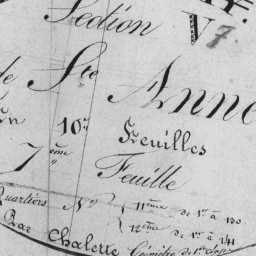 Section V 7.
de Ste Anne
en 10 Feuilles
7ème Feuille
Quartiers Nos 11ème de 1 à 130
12ème de 1 à 141
Bar Chalerie Cimetière de